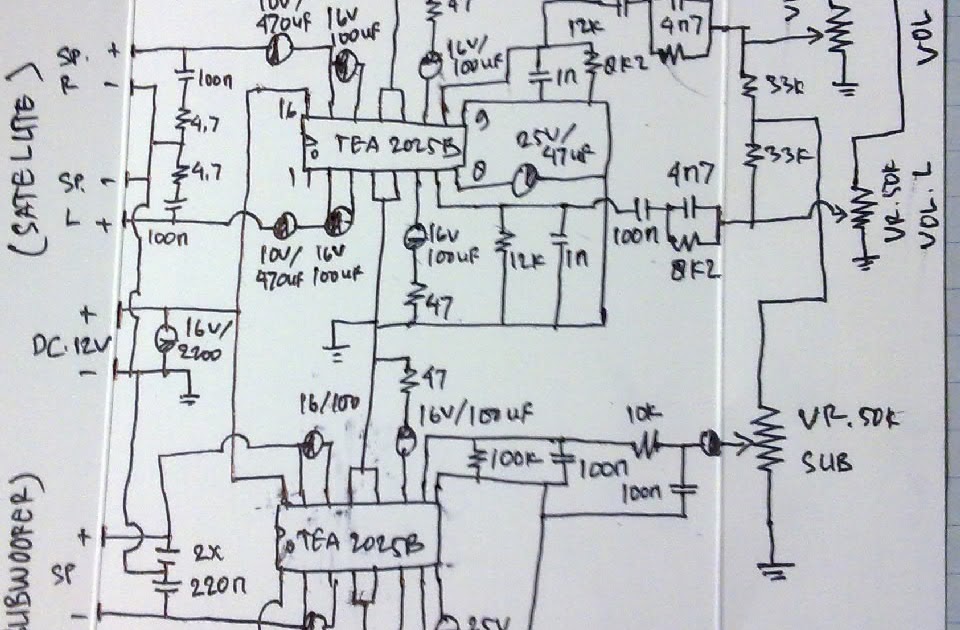 10V/
470uF
16V
100uF
47
16V/
100uF
12K
4n7
8K2
1n
VOL
SP. +
R -
100n
4.7
4.7
SP. -
L +
100n
(SATELLITE)
16
TEA 2025B
9
1
8
25V/
47uF
33K
33K
4n7
100n
8K2
VR.50K
VOL.L
10V/
470uF
16V
100uF
16V
100uF
47
12K
1n
+
DC.12V
-
16V/
2200
47
16/100
16V/100uF
10K
100K
100n
100n
VR.50K
SUB
TEA 2025B
+
SP
-
2X
220n
25V